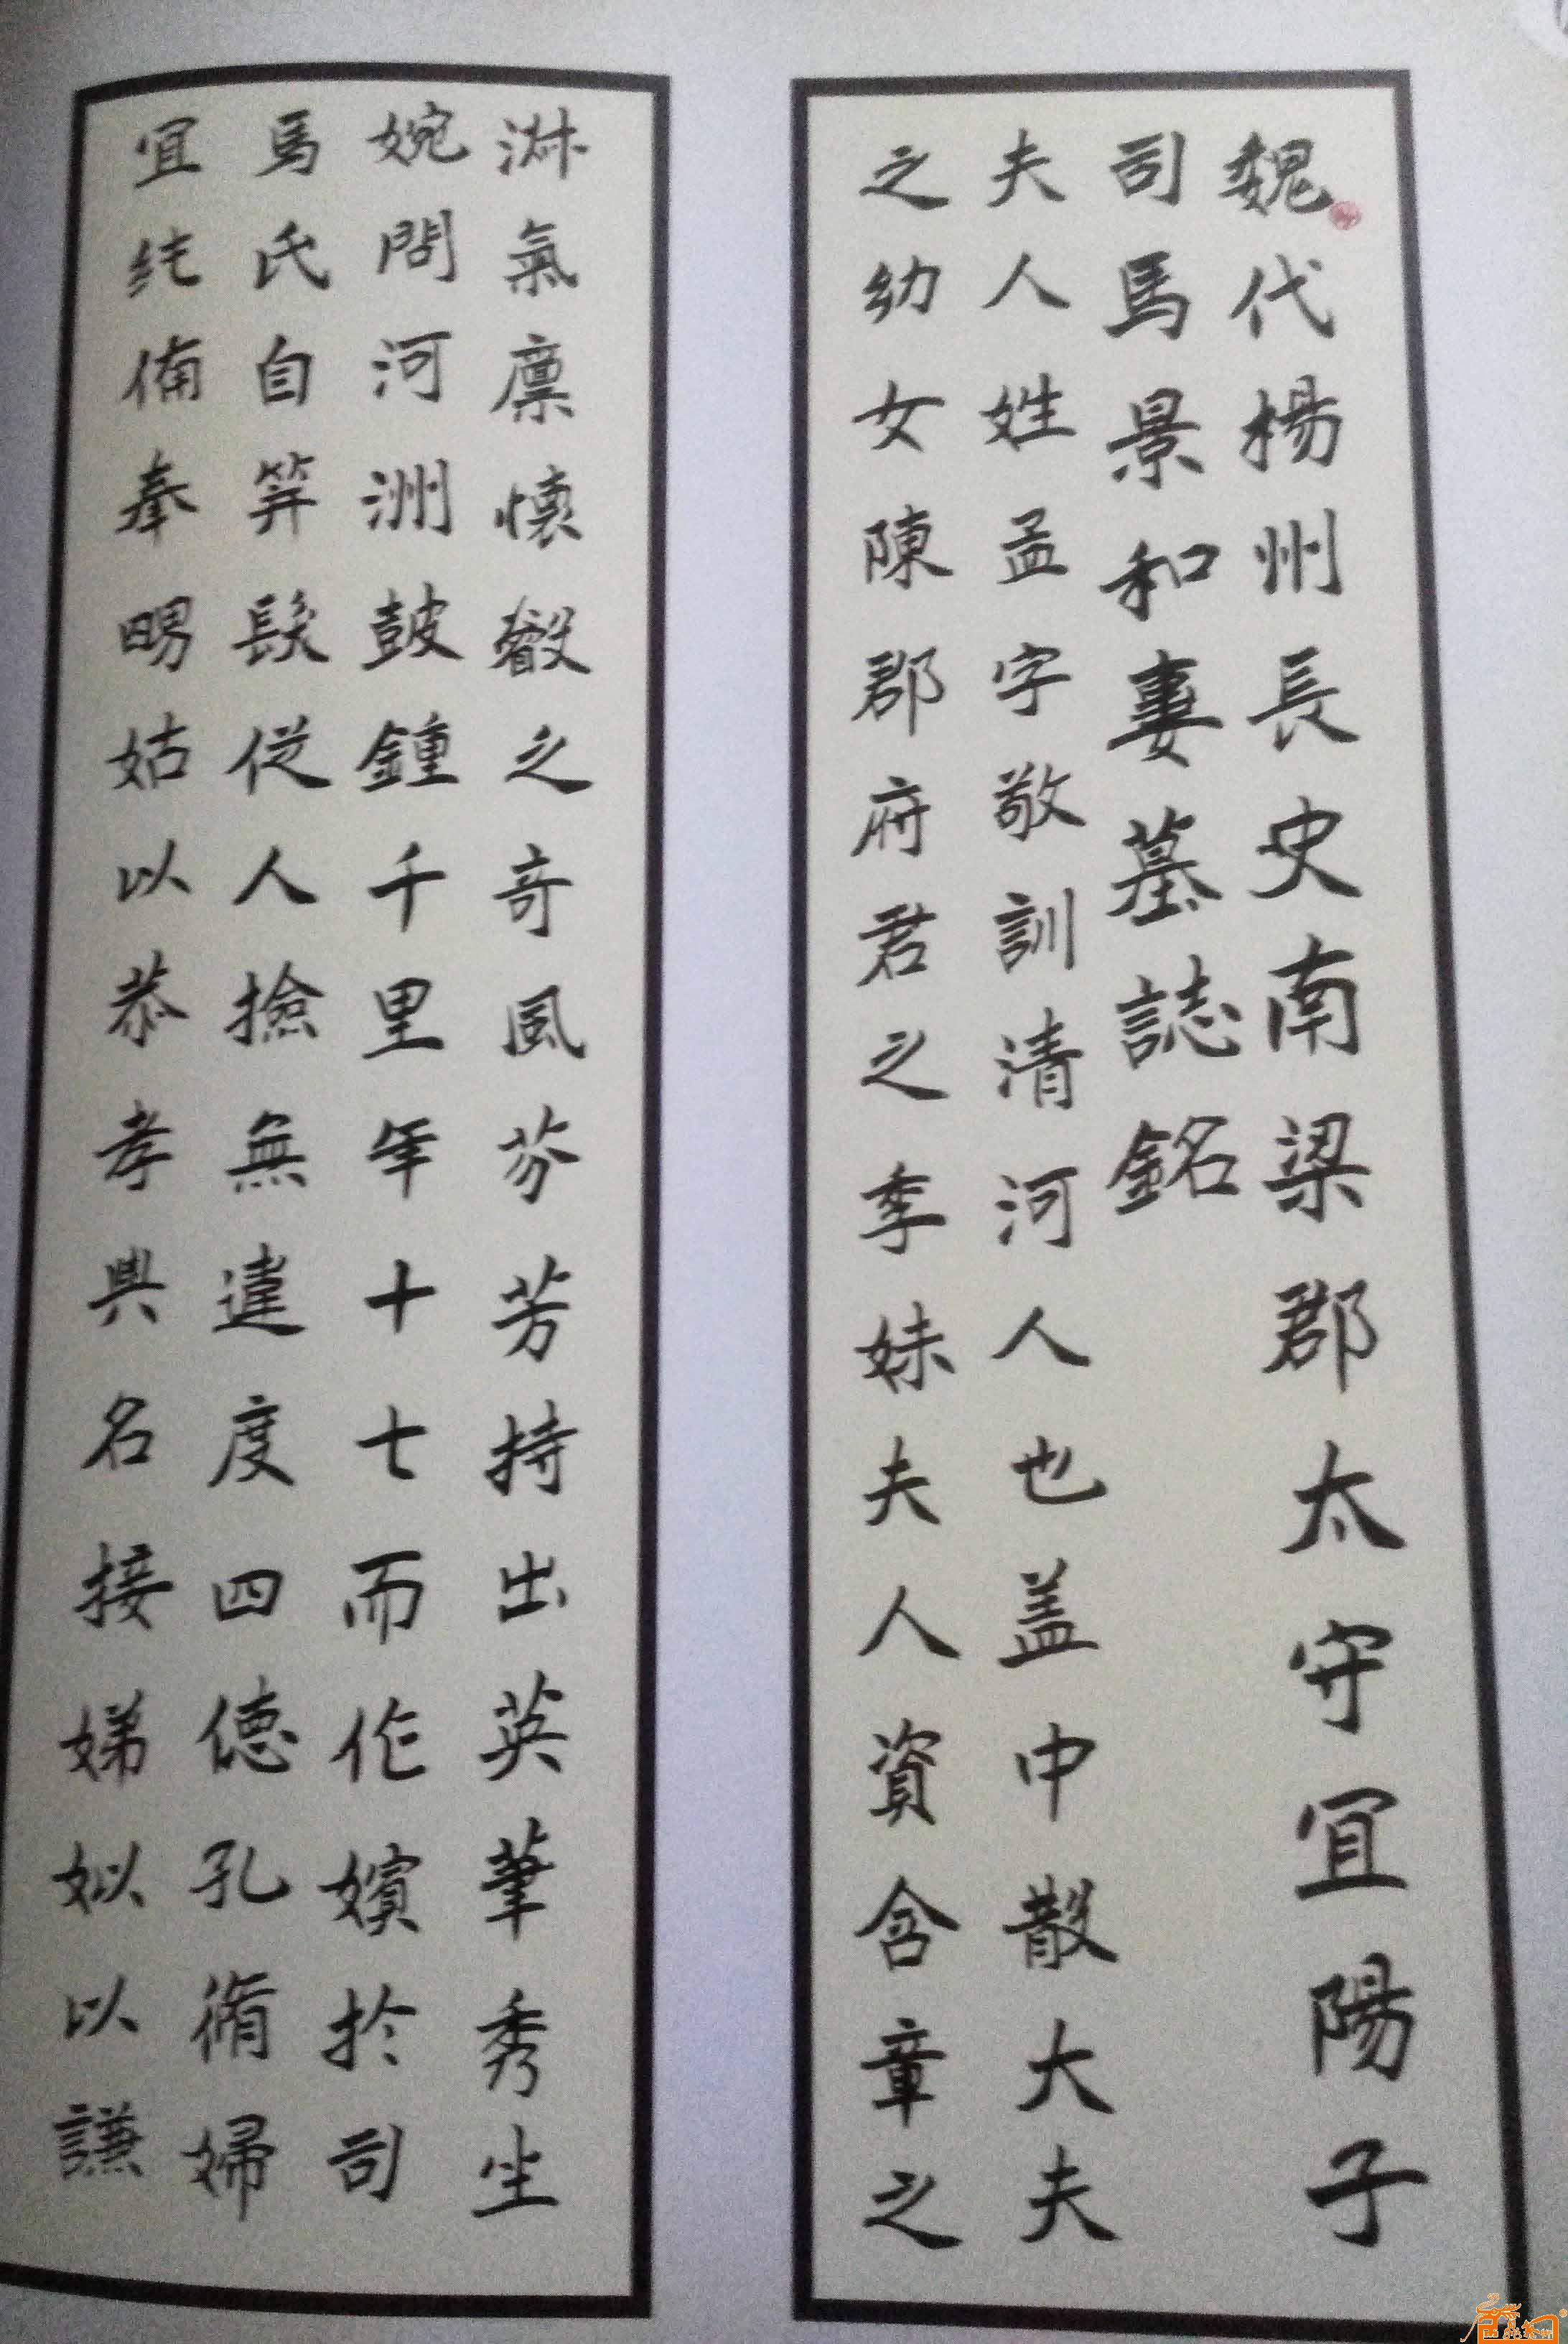 魏代楊州長史南梁郡太守宜陽子
司馬景和妻墓誌銘
夫人姓孟字敬訓清河人也盖中散大夫
之幼女陳郡府君之季妹夫人資含章之
淋氣稟懷叡之奇風芬芳特出英華秀生
婉問河洲鼓鍾千里年十七而作嬪扵司
馬氏自笄髮従人撿無違度四德孔脩婦
宜純備奉舅姑以恭孝興名接娣姒以謙